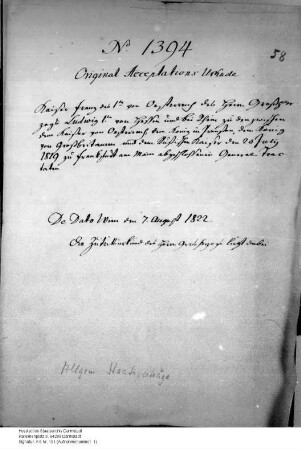 N° 1394
58
Original Acceptations Urkunde
Kaiser Franz des I^ten von Oesterreich des Herrn Großher
zogs Ludwig I^ten von Hessen und bei Rhein zu dem zwischen
dem Kaiser von Oesterreich dem König in Preußen, dem König
von Großbritannien und dem Kaiser den 20 July
1819 zu Frankfurt am Main abgeschlossenen General Trac
taten
De Dato Wien den 7 August 1822.
Die des Herrn Großherzogs liegt dabei
Allgem Staatsverträge
Hessisches Staatsarchiv Darmstadt
Karolinenplatz 3, 64289 Darmstadt